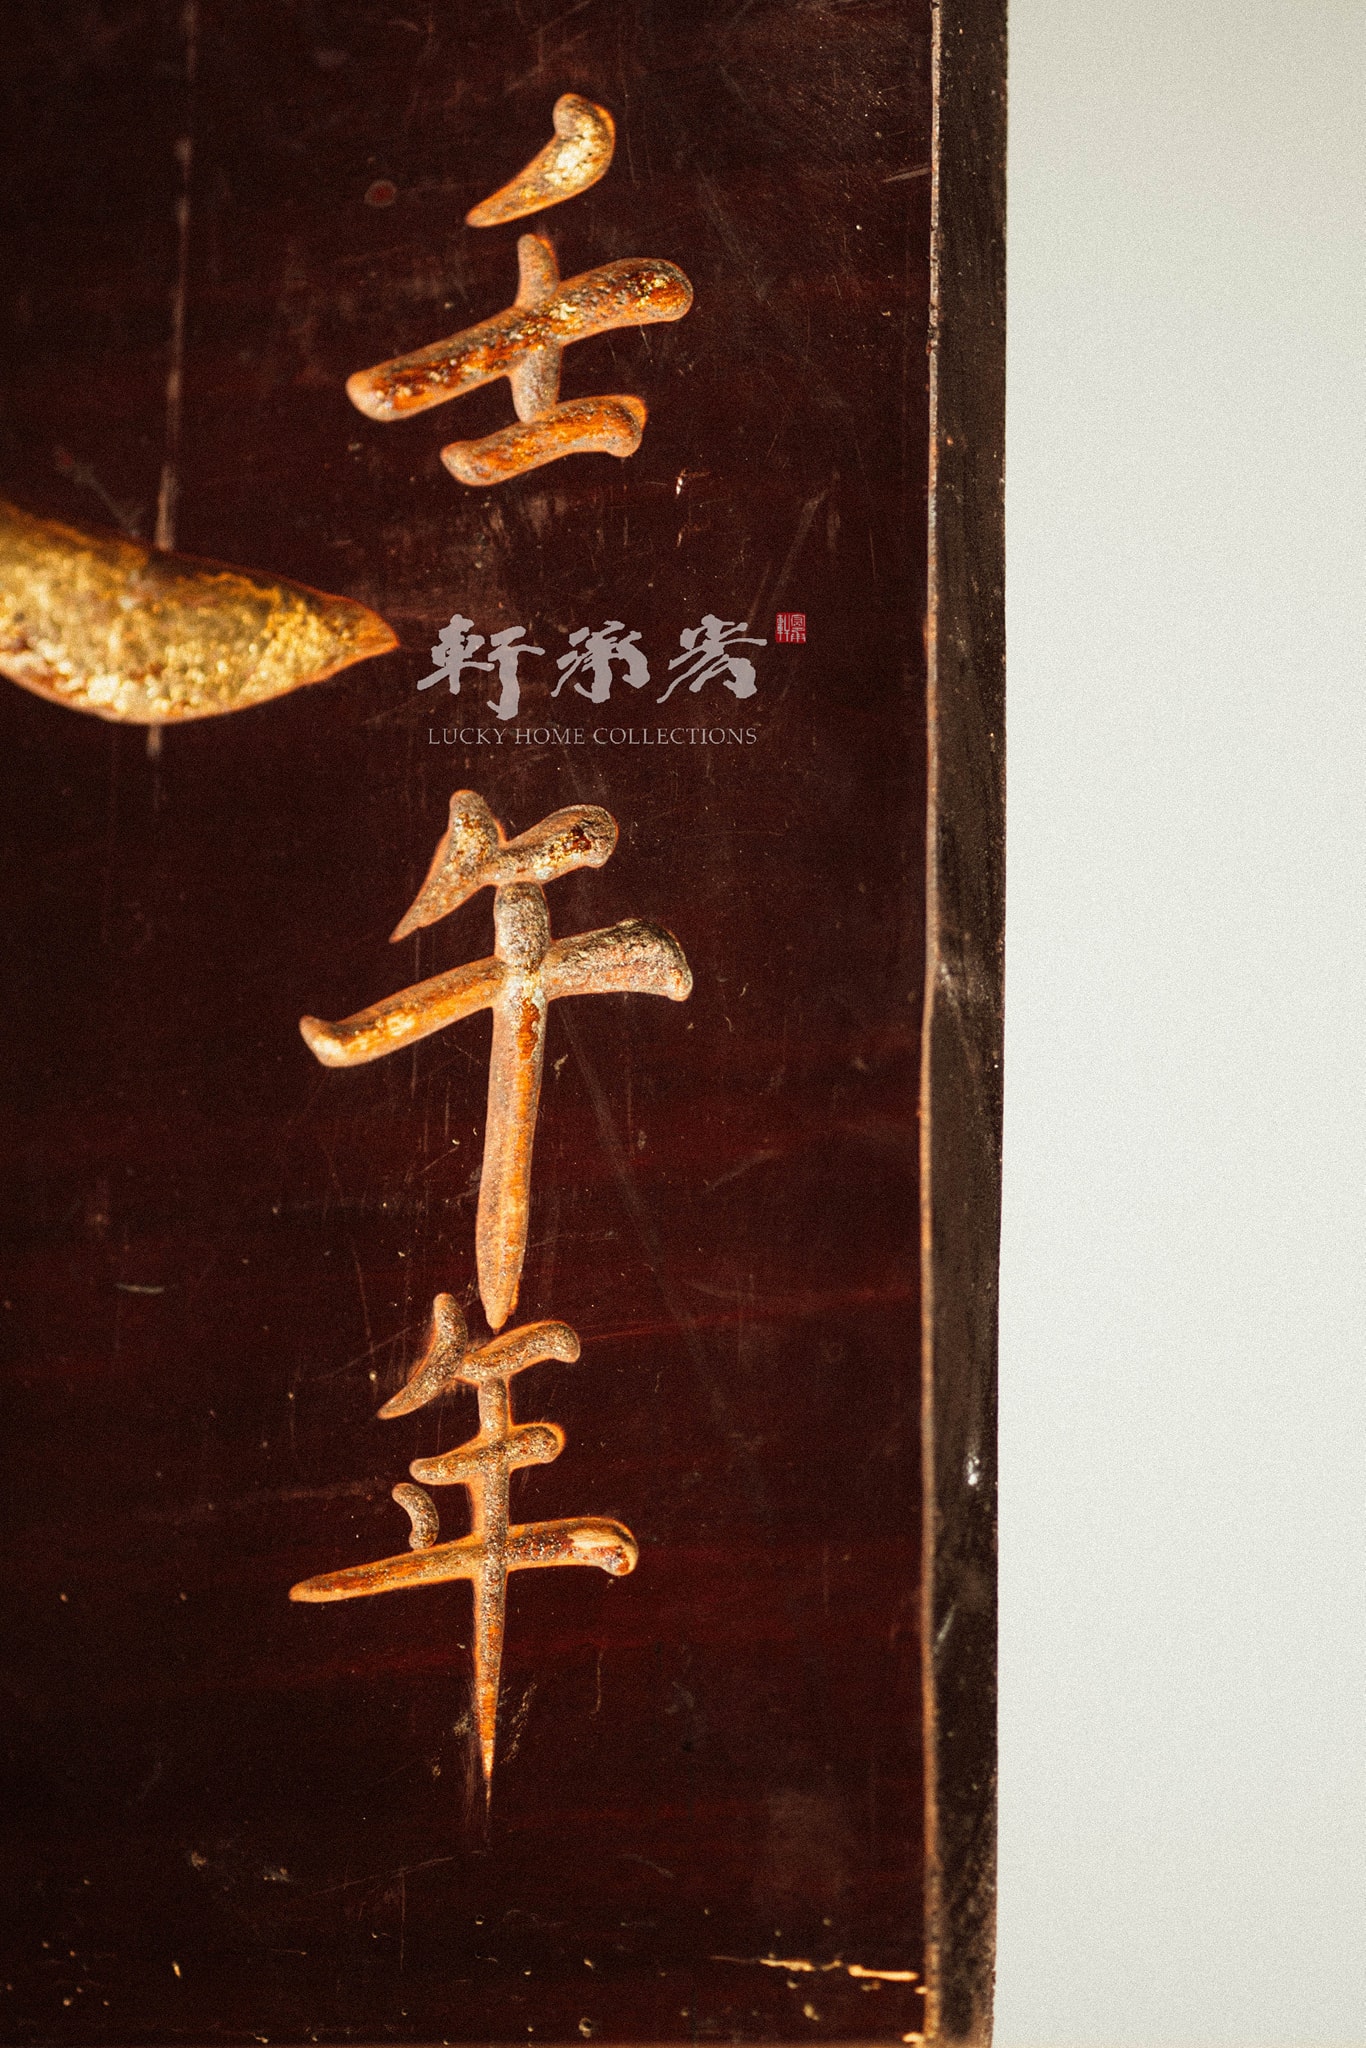 壬午年
軒承宏
LUCKY HOME COLLECTIONS